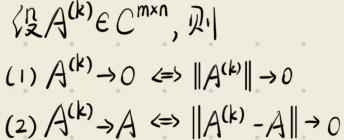 设A^{(k)}∈C^{m×n}, 则
(1) A^{(k)}→0 ⇔ ‖A^{(k)}‖→0
(2) A^{(k)}→A ⇔ ‖A^{(k)}-A‖→0